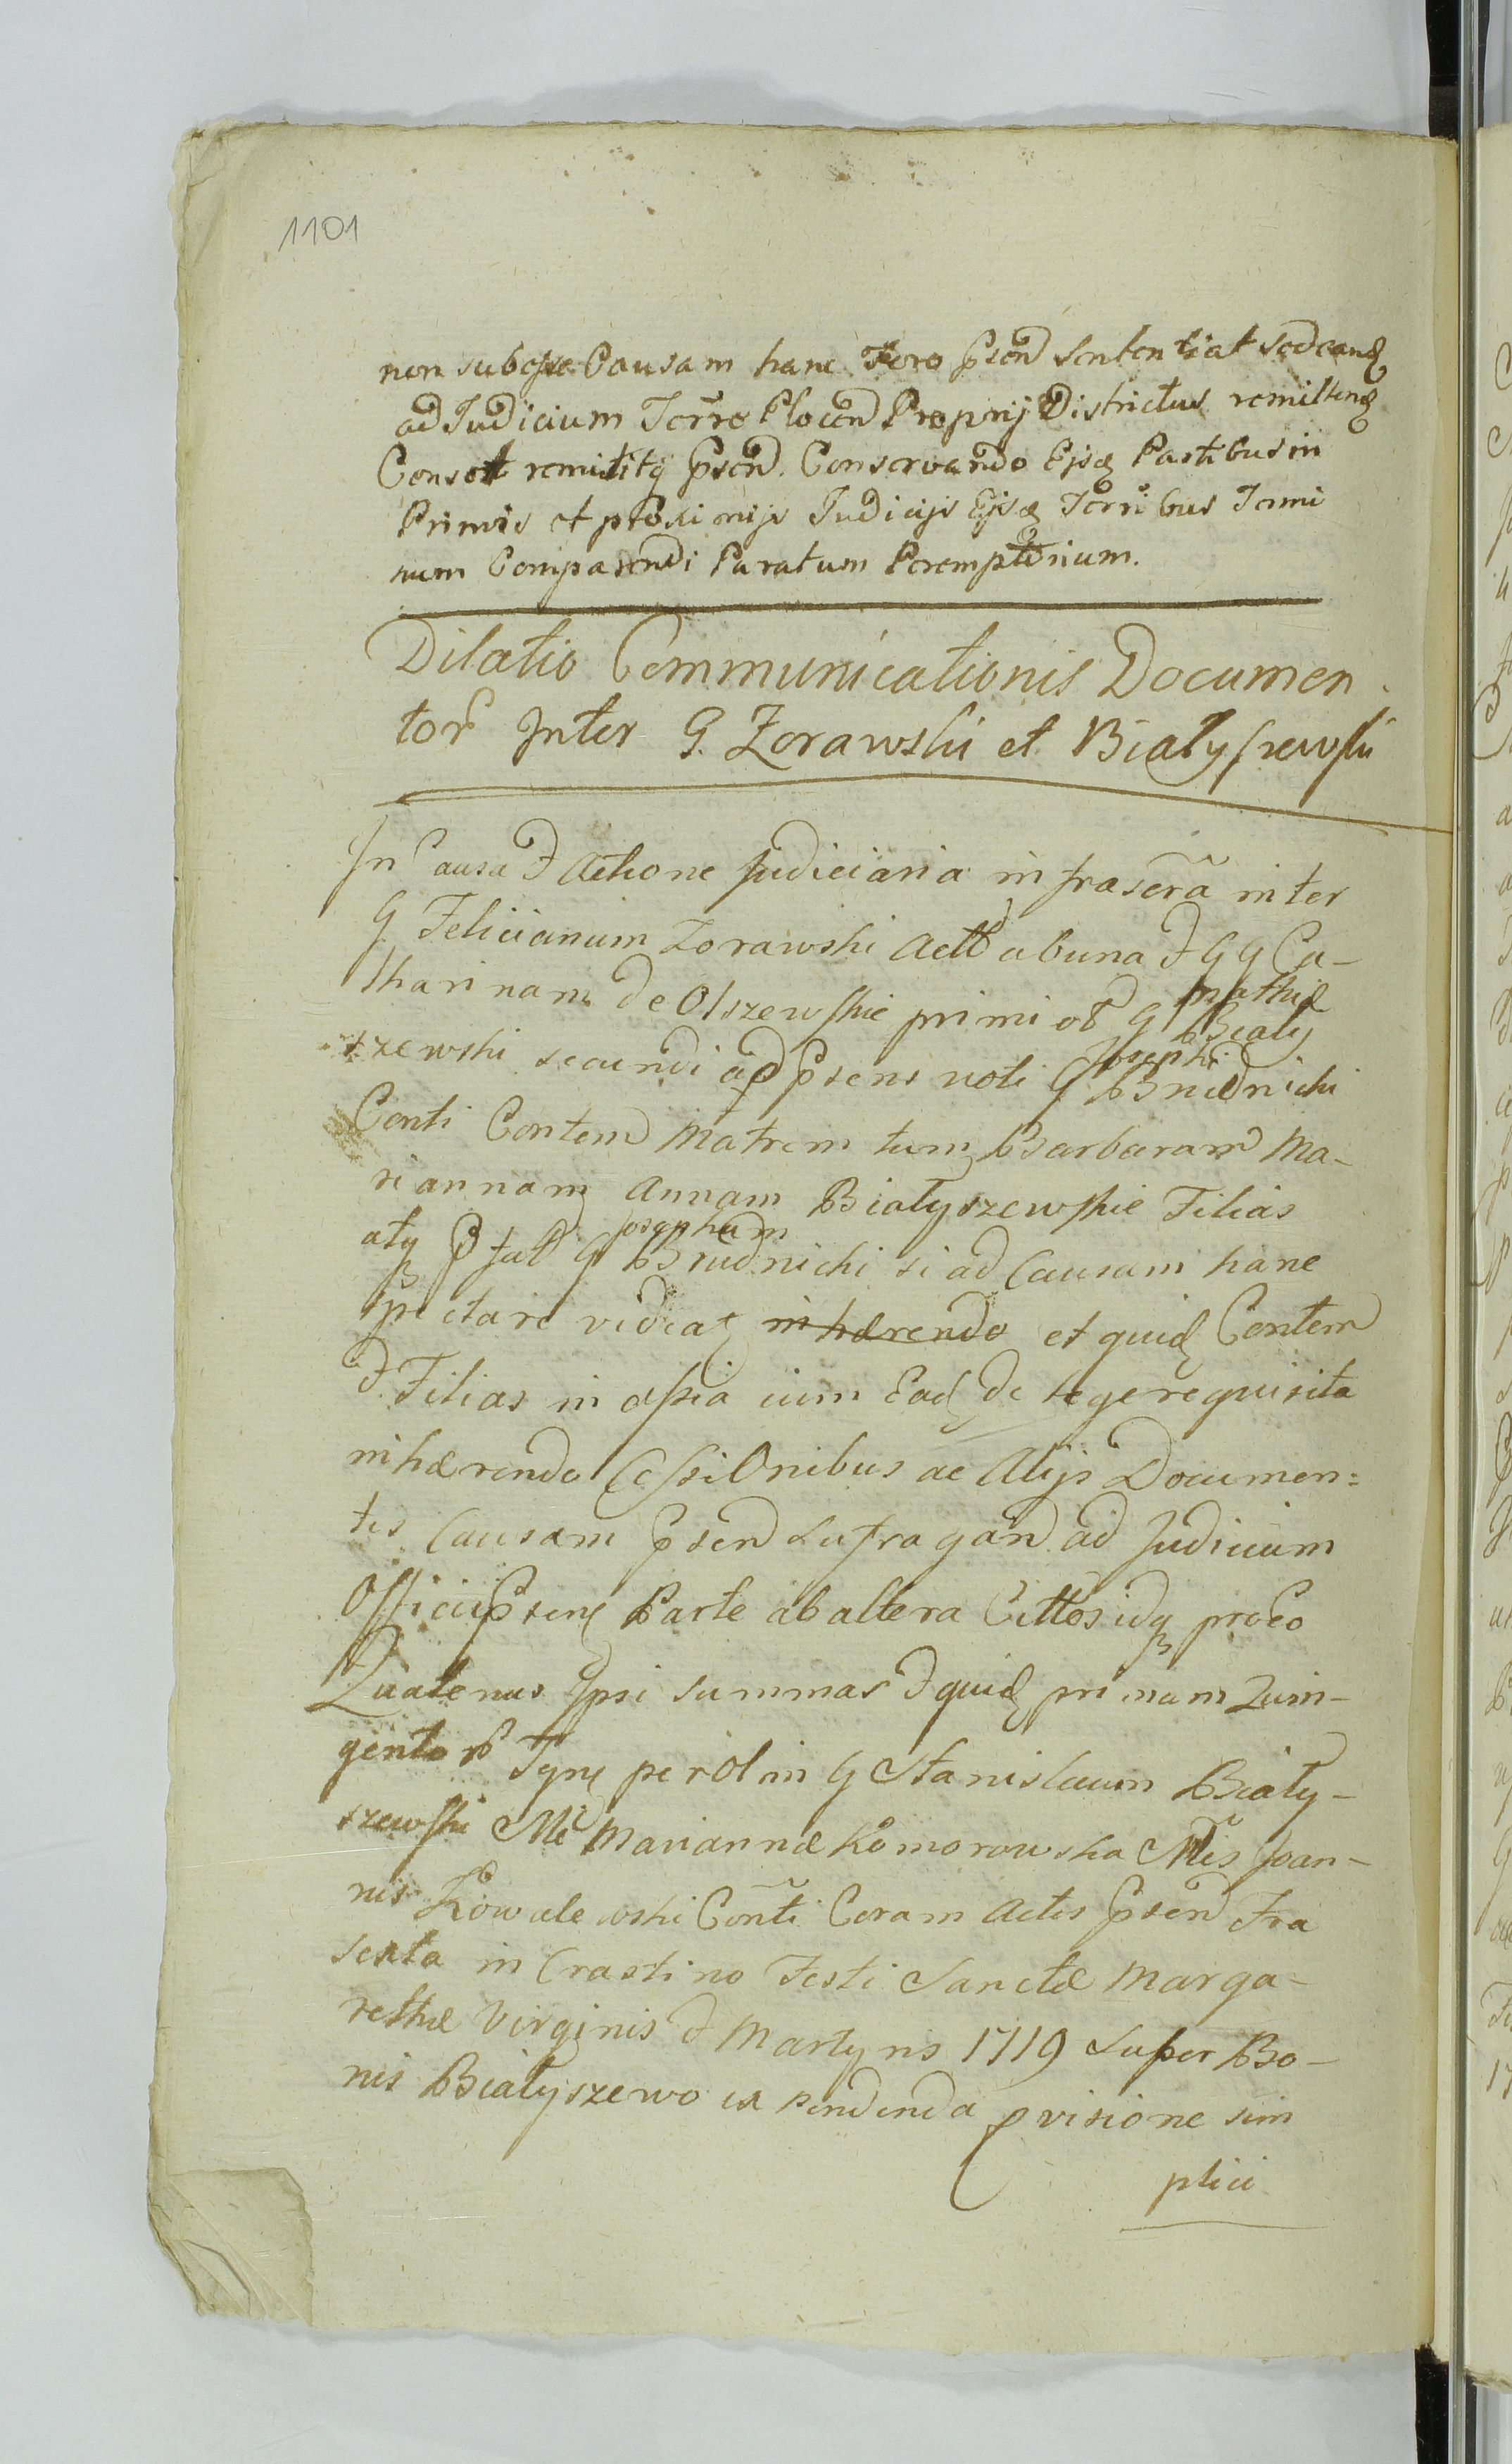 1101
non subesse Causam hanc Foro Psen Sententiat sed eand
ad Judicium Terre Plocen Proprij Districtus remittend
Censet remittitq Psen. Conservando Ejsd Partibus in
Primis et proximijs Judicijs Ejsd Terribus Termi
num Comparendi Paratum Peremptorium.
Dilatio Communicationis Documen
tor Inter G. Zorawski et Białyszewski
In Causa & Actione Judiciaria infrascra inter
G Felicianum Zorawski Actt ab una & GG Ca-
tharinam de Olszewskie primi ol G Mathiæ Biały
szewski secundi ad Psens voti G Josephi Brudnicki
Conti Contem Matrem tum Barbaram Ma-
riannam Annam Białyszewskie Filias
atq G Josephum Brudnicki si ad Causam hanc
spectare videat inhærendo et quid Contem
& Filias in assia cum Ead de lege requisita
inhærendo Cessionibus ac Alijs Documen=
tis Causam Psen Sufragan ad Judicium
Officij Psens Parte ab altera Cittos idq pro eo
Quatenus Ipsi Summas & quid primam Quin-
gentor Tynf per Olim G Stanislaum Biały-
szewski Mariannæ Komorowska Joan-
nis Kowalewski Conti Coram Actis Psen Fra
sexta in Crastino Festi Sanctæ Marga-
rethæ Virginis & Martyris 1719 Super Bo-
nis Białyszewo ex pendenda pvisione sim
plici